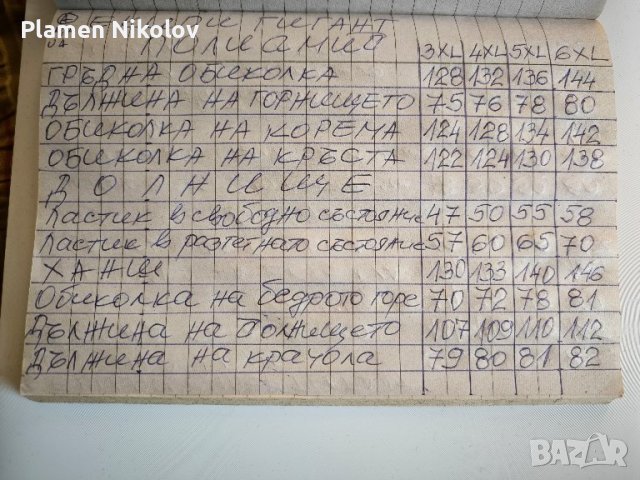 Plamen Nikolov
ГИГАНТ
ПОЛИАМИД
3XL 4XL 5XL 6XL
ГРЪДНА ОБИКОЛКА 128 132 136 144
ДЪЛЖИНА НА ГОРНИЩЕТО 75 76 78 80
ОБИКОЛКА НА КОРЕМА 124 128 134 142
ОБИКОЛКА НА КРЪСТА 122 124 130 138
ДОЛНИЩЕ
Ластик в свободно състояние 47 50 55 58
Ластик в разтегнато състояние 57 60 65 70
ХАНШ 130 133 140 146
Обиколка на бедрото горе 70 72 78 81
Дължина на долнището 107 109 110 112
Дължина на крачола 79 80 81 82
BAZAR